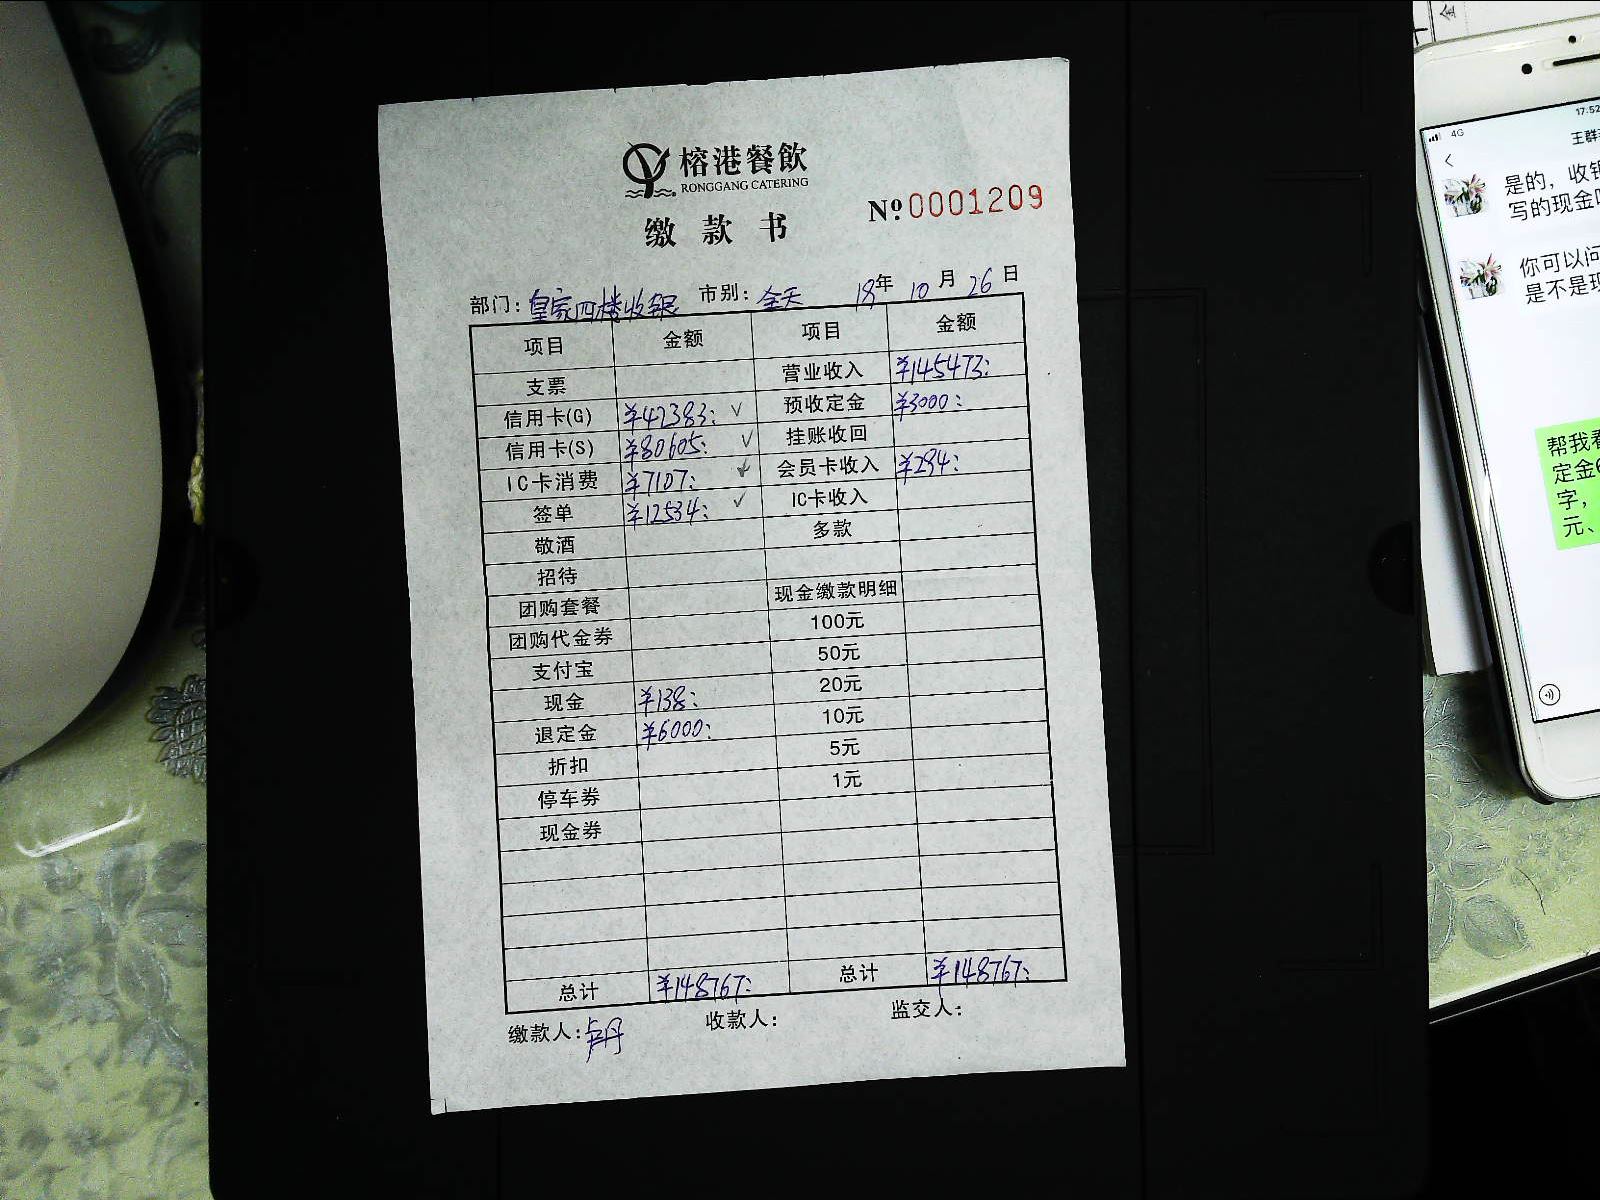 榕港餐飲
RONGGANG CATERING
缴款书
№0001209
部门: 皇家四楼收银 市别: 全天 18年 10月 26日
项目 金额 项目 金额
支票 营业收入 ¥145473:
信用卡(G) ¥42383: √ 预收定金 ¥3000:
信用卡(S) ¥80605: √ 挂账收回
IC卡消费 ¥7107: 会员卡收入 ¥294:
签单 ¥12534: √ IC卡收入
敬酒 多款
招待
团购套餐 现金缴款明细
团购代金券 100元
支付宝 50元
现金 ¥138: 20元
退定金 ¥6000: 10元
折扣 5元
停车券 1元
现金券
总计 ¥148767: 总计 ¥148767:
缴款人: 卢丹 收款人: 监交人:
4G 17:52
王群
是的，收
写的现金
你可以问
是不是现
帮我看
定金6
字，
元、